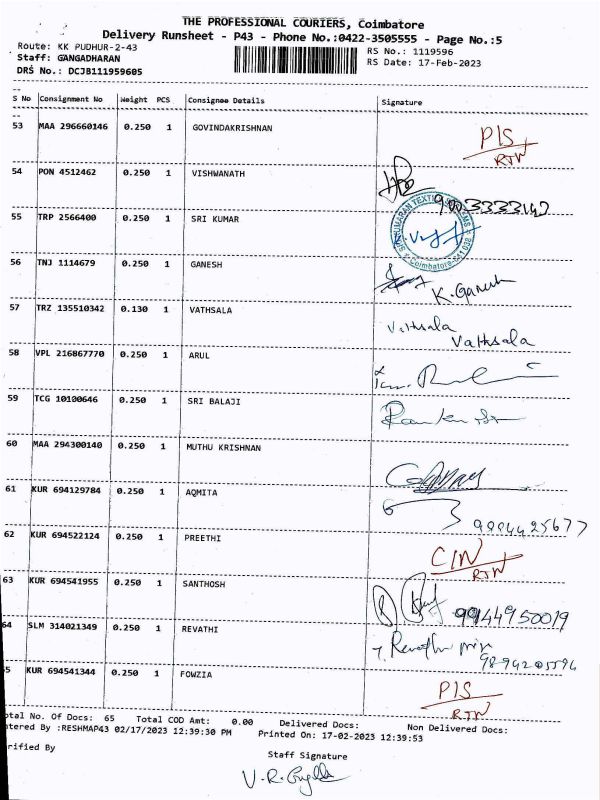 THE PROFESSIONAL COURIERS, Coimbatore
Delivery Runsheet - P43 - Phone No.:0422-3505555 - Page No.:5
Route: KK PUDHUR-2-43 RS No.: 1119596
Staff: GANGADHARAN RS Date: 17-Feb-2023
DRS No.: DCJB111959605
S No Consignment No Weight PCS Consignee Details Signature
53 MAA 296660146 0.250 1 GOVINDAKRISHNAN P/S
RTN
54 PON 4512462 0.250 1 VISHWANATH
55 TRP 2566400 0.250 1 SRI KUMAR
56 TNJ 1114679 0.250 1 GANESH K. Ganesh
57 TRZ 135510342 0.130 1 VATHSALA Vathsala
Vathsala
58 VPL 216867770 0.250 1 ARUL
59 TCG 10100646 0.250 1 SRI BALAJI
60 MAA 294300140 0.250 1 MUTHU KRISHNAN
61 KUR 694129784 0.250 1 AQMITA 9994425677
62 KUR 694522124 0.250 1 PREETHI C/N
RTN
63 KUR 694541955 0.250 1 SANTHOSH 9944950019
64 SLM 314021349 0.250 1 REVATHI Revathi priya
KUR 694541344 0.250 1 FOWZIA P/S
RTN
No. Of Docs: 65 Total COD Amt: 0.00 Delivered Docs: Non Delivered Docs:
By :RESHMAP43 02/17/2023 12:39:30 PM Printed On: 17-02-2023 12:39:53
By Staff Signature